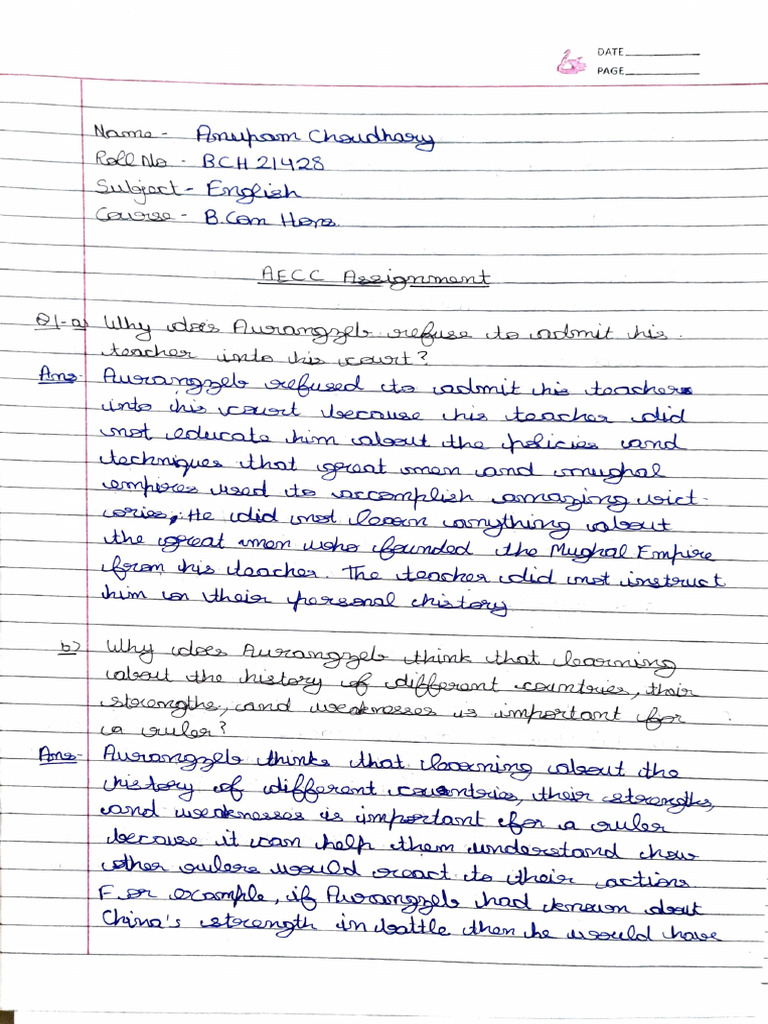 DATE
PAGE
Name - Anupam Choudhary
Roll No - BCH 21428
Subject - English
Course - B.Com Hons.
AECC Assignment
Q1-a) Why does Aurangzeb refuse to admit his
teacher into his court?
Ans- Aurangzeb refused to admit his teacher
into his court because his teacher did
not educate him about the policies and
techniques that great men and mughal
empires used to accomplish amazing vict-
ories, He did not learn anything about
the great men who founded the Mughal Empire
from his teacher. The teacher did not instruct
him on their personal history
b) Why does Aurangzeb think that learning
about the history of different countries, their
strengths, and weaknesses is important for
a ruler?
Ans- Aurangzeb thinks that learning about the
history of different countries, their strengths,
and weaknesses is important for a ruler
because it can help them understand how
other rulers would react to their actions
For example, if Aurangzeb had known about
China's strength in battle then he would have